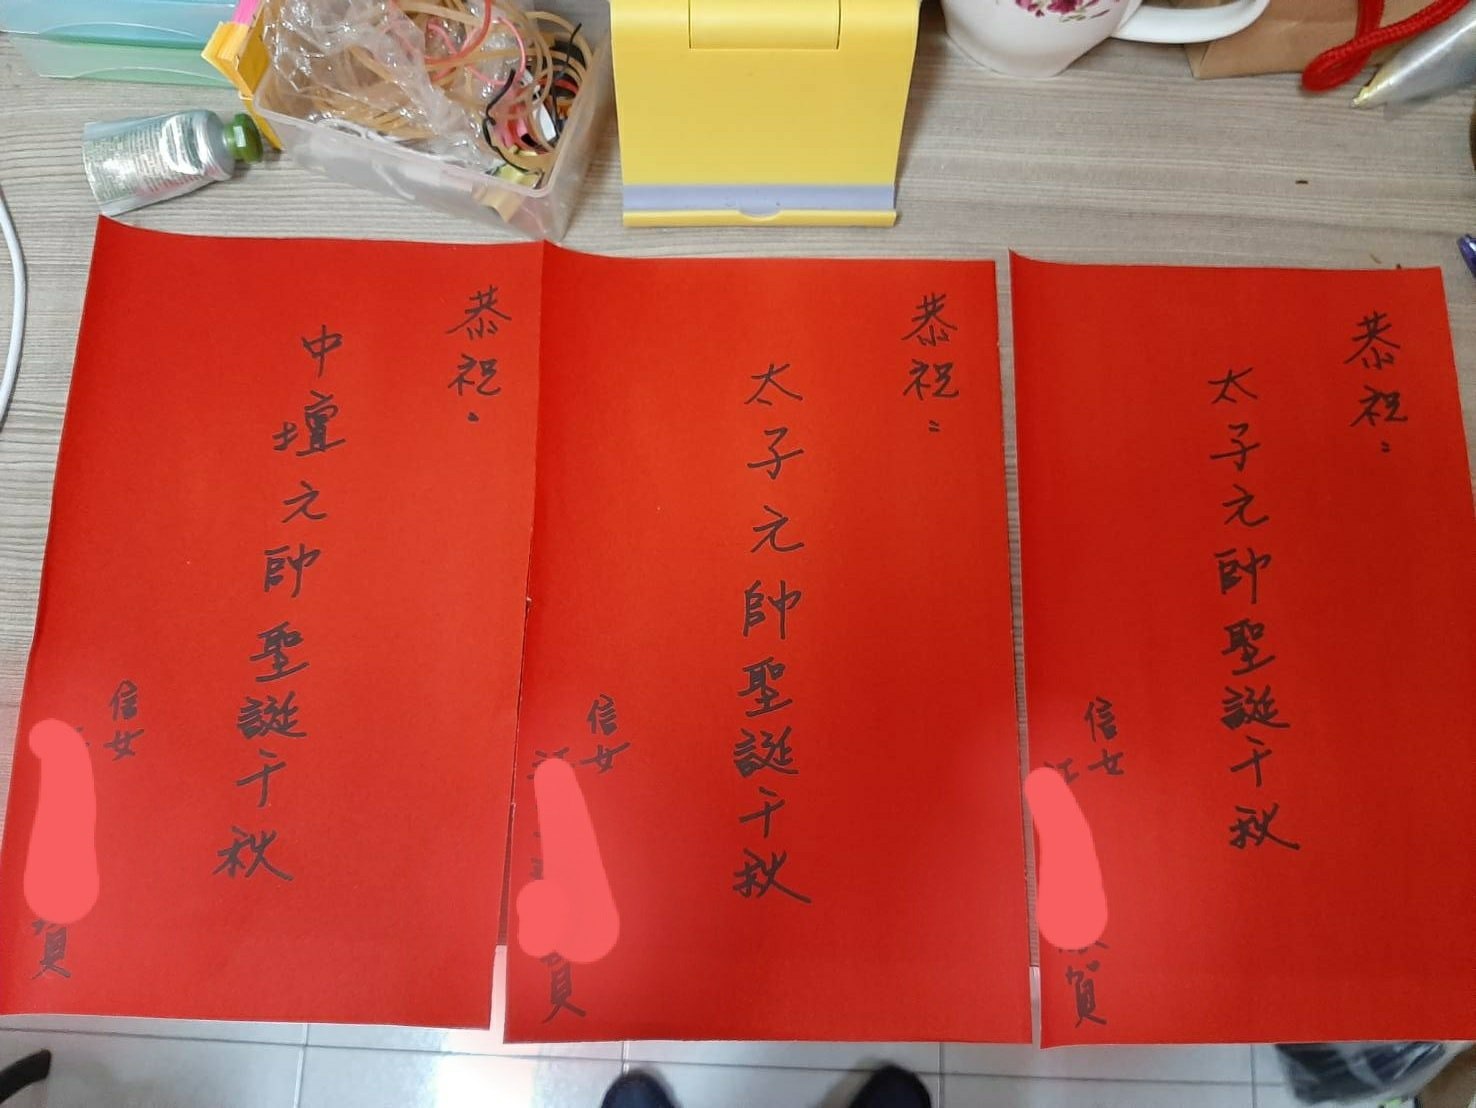 恭祝：
中壇元帥聖誕千秋
信女
賀
恭祝：
太子元帥聖誕千秋
信女
賀
恭祝：
太子元帥聖誕千秋
信女
賀